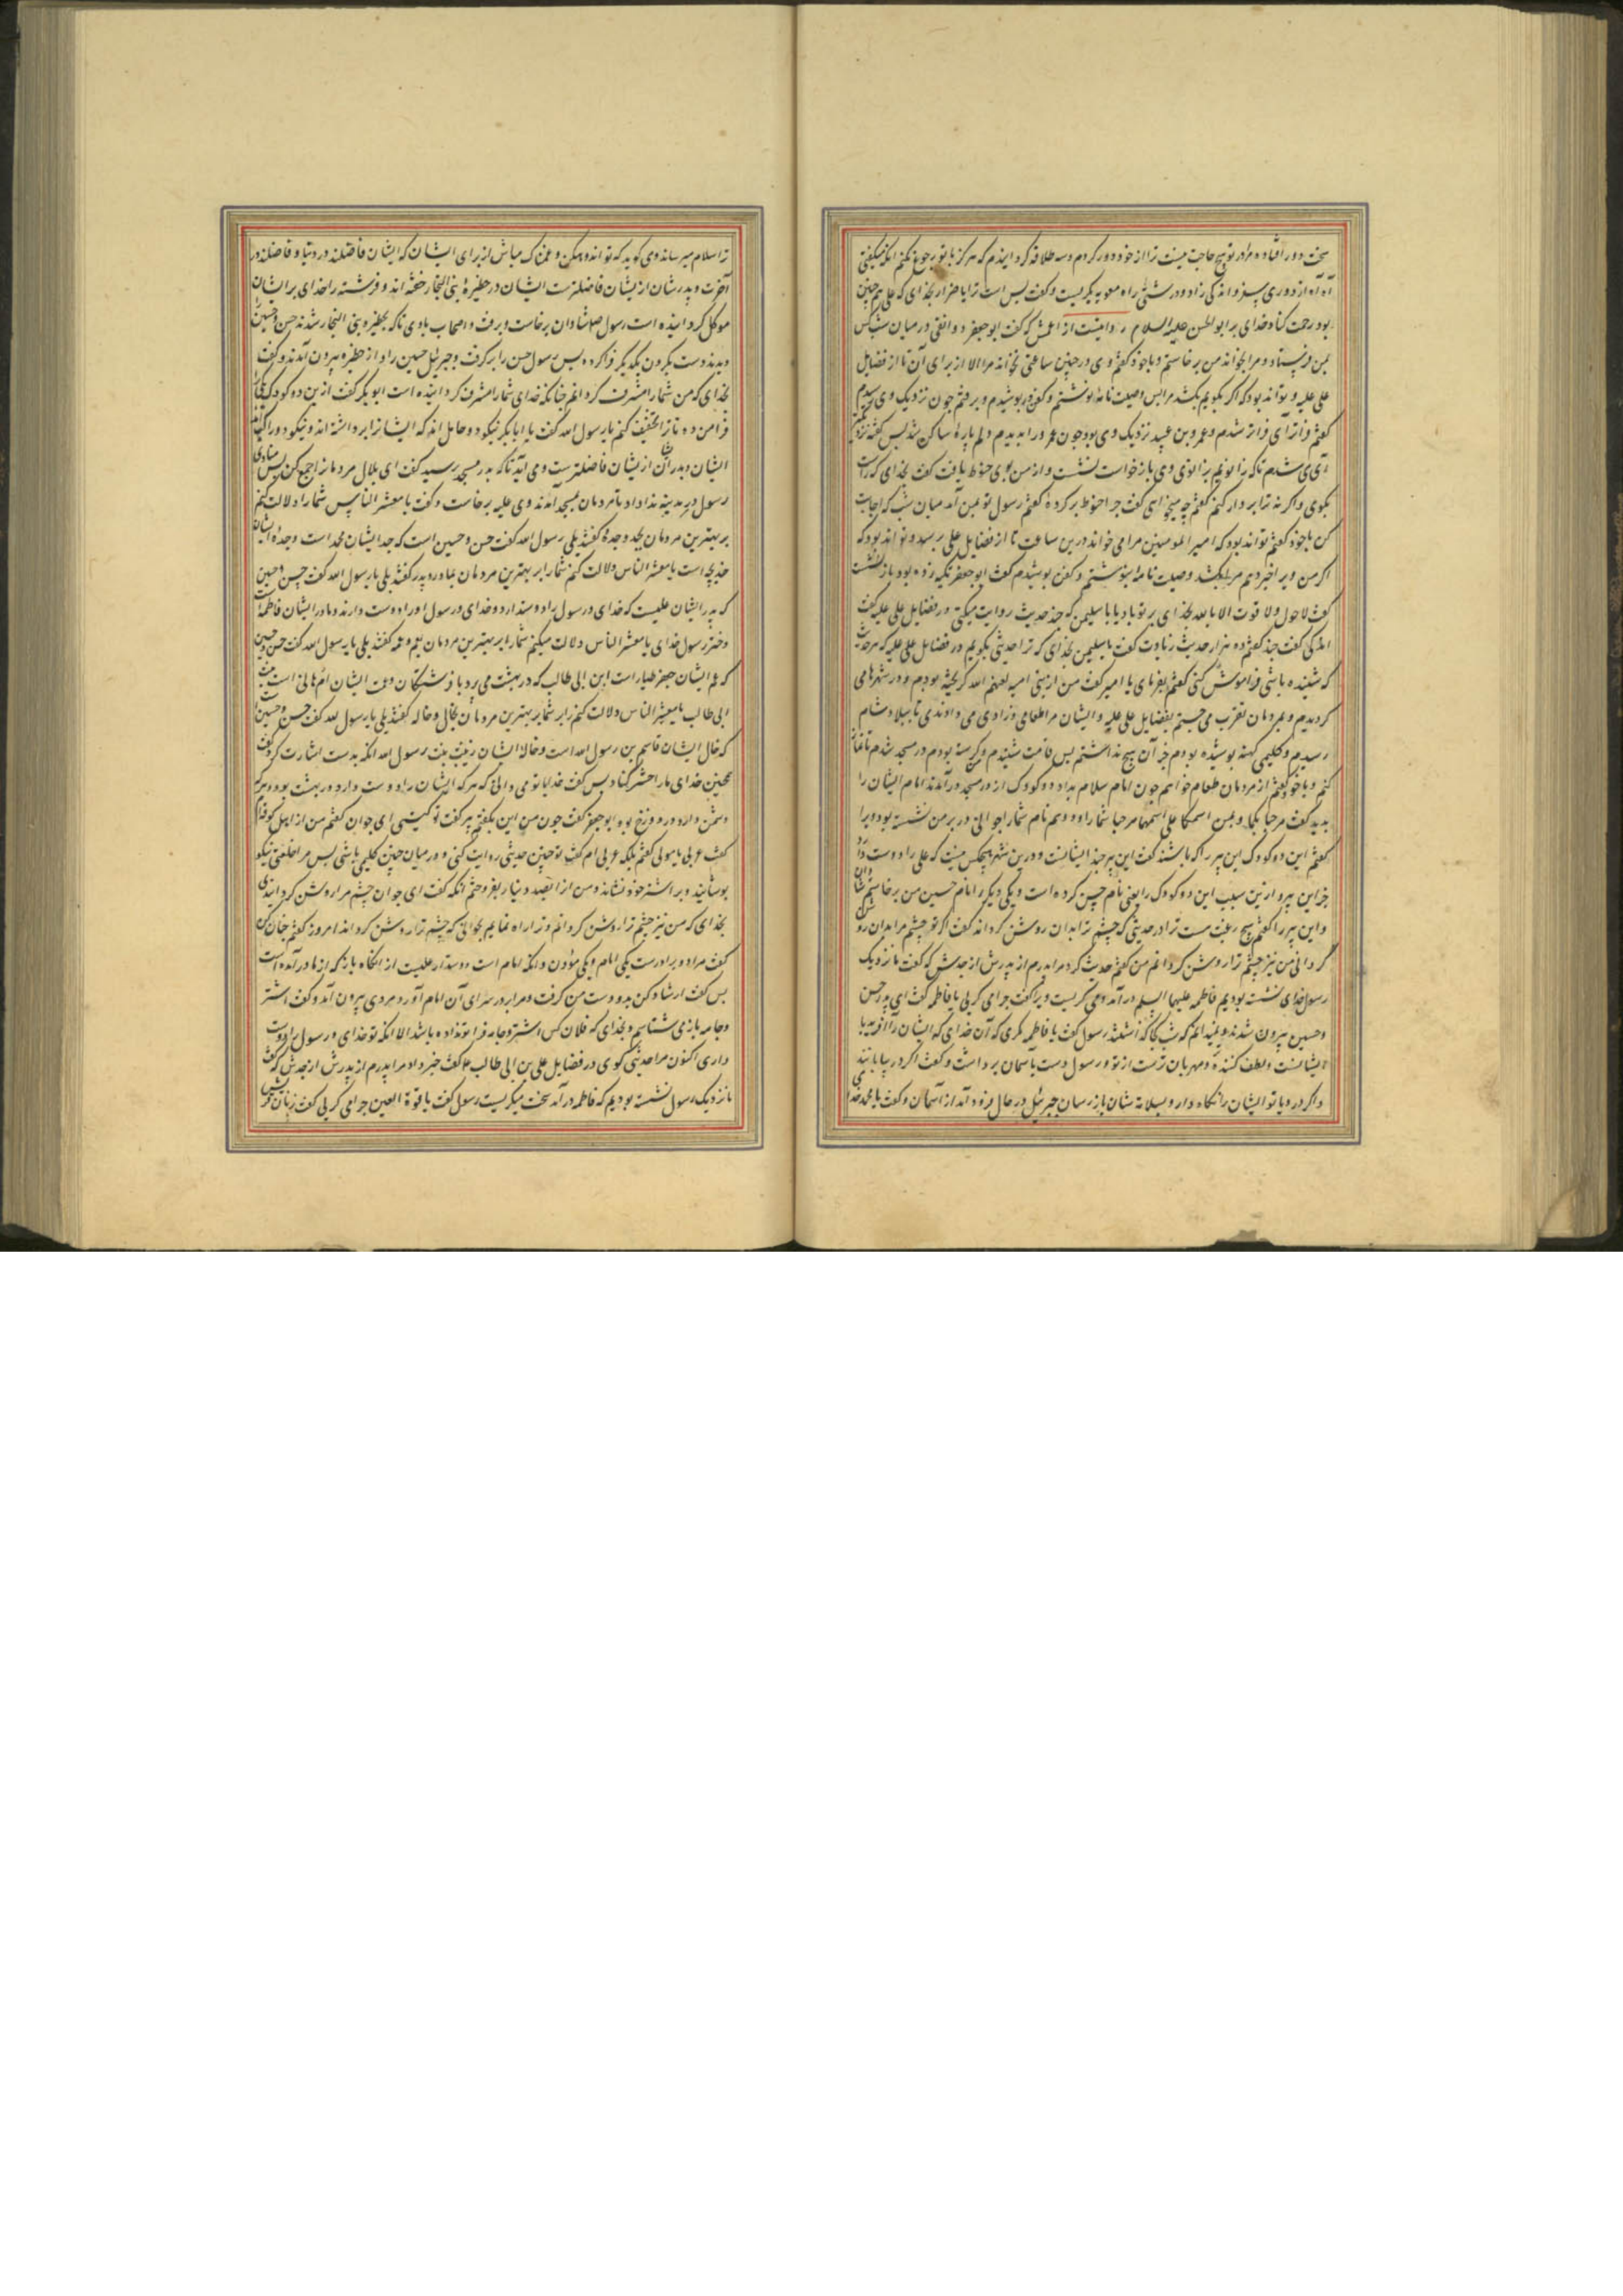 سخت دور افتاده مرا در تو هیچ حاجت نیست ترا از خود دور کردم و سه طلاقه گردانیدم که هرگز با تو رجوع نکنم انکه میگفتی
آه آه از دوری سفر و اندکی زاد و درشتی راه معویه بگریست و گفت بس است ترا یا ضرار بخدای که علی همچنین
بود رحمت کناد خدای بر ابو الحسن علیه السلام روایتست از اعمش که گفت ابو جعفر دوانقی در میان شب کس
بمن فرستاد و مرا بخواند من برخاستم و با خود گفتم وی در چنین ساعتی نخواند مرا الا از برای آن تا از فضایل
علی علیه و تواند بود که اگر بگویم بکشد مرا پس وصیت نامه بنوشتم و کفن در پوشیدم و برفتم چون نزدیک وی رسیدم
گفتم فراتر آی فراتر شدم و عمرو بن عبید نزدیک وی بود چون عمرو را بدیدم دلم پاره ساکن شد پس گفت نزدیکتر
آی شدم تاکه زانویم بزانوی وی باز خواست نشست و از من بوی حنوط یافت گفت بخدای که راست
بگوی و اگر نه ترا بر دار کنم گفتم چه میخواهی گفت چرا حنوط برکرده گفتم رسول تو بمن آمد میان شب که اجابت
کن با خود گفتم تواند بود که امیر المومنین مرا می خواند درین ساعت تا از فضایل علی برسد و تواند بود که
اگر من ویرا خبر دهم مرا بکشد وصیت نامه بنوشتم و کفن بپوشیدم گفت ابو جعفر تکیه زده بود باز نشست
گفت لا حول ولا قوت الا بالله بخدای بر تو باد یا با سلیمن که چند حدیث روایت میکنی در فضایل علی علیه گفت
اندکی گفت چند گفتم ده هزار حدیث زیادت گفت یا سلیمن بخدای که ترا حدیثی بگویم در فضایل علی علیه که هر حدیث
که شنیده باشی فراموش کنی گفتم بفرمای یا امیر گفت من از بنی امیه لعنهم الله گریخته بودم و در شهرها می
گردیدم و بمردمان تقرب می جستم بفضایل علی علیه و ایشان مرا طعامی و زادی می دادندی تا ببلاد شام
رسیدم و کلیمی کهنه پوشیده بودم جز آن هیچ نداشتم پس قامت شنیدم و گرسنه بودم در مسجد شدم تا نماز
کنم و با خود گفتم از مردمان طعام خواهم چون امام سلام بداد دو کودک از در مسجد درآمدند امام ایشان را
بدید گفت مرحبا بکما و بمن اسمکا علی اسمهما مرحبا شما را و دو هم نام شما را جوانی در بر من نشسته بود ویرا
گفتم این دو کودک این پیر را که باشند گفت این پیر جد ایشانست و درین شهر هیچکس نیست که علی را دوست دارد
جز این پیر و ازین سبب این دو کودک را یعنی نام حسن کرده است و یکی دیگر را نام حسین من برخاستم شادان
و این پیر را گفتم هیچ رغبت هست ترا در حدیثی که چشم ترا بدان روشن گرداند گفت اگر تو چشم مرا بدان روشن
گردانی من نیز چشم ترا روشن گردانم من گفتم حدیث کرد مرا پدرم از پدرش از جدش که گفت ما نزدیک
رسول خدای نشسته بودیم فاطمه علیها السلم درآمد و می گریست ویرا گفت چرا می گریی یا فاطمه گفت ای پدر حسن
و حسین بیرون شدند و نمیدانم که شب کجا گذاشتند رسول گفت یا فاطمه مگری که آن خدای که ایشان را آفریده با
ایشانست و لطف کننده و مهربان ترست از تو و رسول دست باسمان برداشت و گفت اگر در بیابانند
و اگر در دریا تو ایشان را نگاه دار و بسلامتشان باز رسان جبرئیل در حال فرود آمد از آسمان و گفت یا محمد خدای
ترا سلام میرساند و می گوید که تو اندوهگین و غمناک مباش از برای ایشان که ایشان فاضلند در دنیا و فاضلند در
آخرت و پدرشان ازیشان فاضلترست ایشان در حظیره بنی النجار خفته اند و فرشته را خدای بر ایشان
موکل گردانیده است رسول صلی شادان برخاست و برفت و اصحاب با وی تا که بحظیره بنی النجار شدند حسن و حسین را
دیدند دست بگردن یکدیگر فراکرده پس رسول حسن را برگرفت و جبرئیل حسین را و از حظیره بیرون آمدند و گفت
بخدای که من شما را مشرف گردانم چنانکه خدای شما را مشرف گردانیده است ابو بکر گفت ازین دو کودک یکی را
فرا من ده تا ترا تخفیف کنم یا رسول الله گفت یا ابا بکر نیکو دو حامل اند که ایشانرا برداشته اند و نیکو دو راکباند
ایشان و پدرشان ازیشان فاضلترست و می آمد تا که بدر مسجد رسید گفت ای بلال مردمانرا جمع کن پس منادی
رسول در مدینه ندا داد تا مردمان بمسجد آمدند وی علیه برخاست و گفت یا معشر الناس شما را دلالت کنم
بر بهترین مردمان بجد و جده گفتند بلی رسول الله گفت حسن و حسین است که جد ایشان محمد است و جده ایشان
خدیجه است یا معشر الناس دلالت کنم شما را بر بهترین مردمان بمادر و پدر گفتند بلی یا رسول الله گفت حسن و حسین
که پدر ایشان علیست که خدای و رسول را دوست دارد و خدای و رسول او را دوست دارند و مادر ایشان فاطمه است
دختر رسول خدای یا معشر الناس دلالت میکنم شما را بر بهترین مردمان بعم و عمه گفتند بلی یا رسول الله گفت حسن و حسین
که عم ایشان جعفر طیار است ابن ابی طالب که در بهشت می پرد با فرشتگان و عمت ایشان ام هانی است بنت
ابی طالب یا معشر الناس دلالت کنم شما را بر بهترین مردمان بخال و خاله گفتند بلی یا رسول الله گفت حسن و حسین است
که خال ایشان قاسم بن رسول الله است و خاله ایشان زینب بنت رسول الله انکه بدست اشارت کرد و گفت
همچنین خدای ما را حشر کناد پس گفت خدایا تو می دانی که هر که ایشان را دوست دارد در بهشت بود و هر که
دشمن دارد در دوزخ بود و ابو جعفر گفت چون من این بگفتم پیر گفت تو کیستی ای جوان گفتم من از اهل کوفه ام
گفت عربی یا مولی گفتم بلکه عربی ام گفت تو چنین حدیثی روایت کنی و در میان چنین کلیمی باشی پس مرا خلعتی نیکو
بپوشانید و بر استر خود نشاند و من از انصد دینار بفروختم انکه گفت ای جوان چشم مرا روشن گردانیدی
بخدای که من نیز چشم ترا روشن گردانم و ترا راه نمایم بجوانی که چشم ترا روشن گرداند امروز گفتم چنان کن
گفت مرا دو برادرست یکی امام و یکی مؤذن و انکه امام است دوستدار علیست از انگاه باز که از مادر آمده است
پس گفت ارشاد کن بدو دست من گرفت و مرا بدر سرای آن امام آورد مردی بیرون آمد و گفت استر
و جامه باز می شناسم و بخدای که فلان کس استر و جامه فرا تو نداده باشد الا انکه تو خدای و رسول را دوست
داری اکنون مرا حدیثی گوی در فضایل علی بن ابی طالب ع گفت خبر داد مرا پدرم از پدرش از جدش که گفت
ما نزدیک رسول نشسته بودیم که فاطمه درآمد سخت میگریست رسول گفت یا قرة العین چرا می گریی گفت زنان قریش